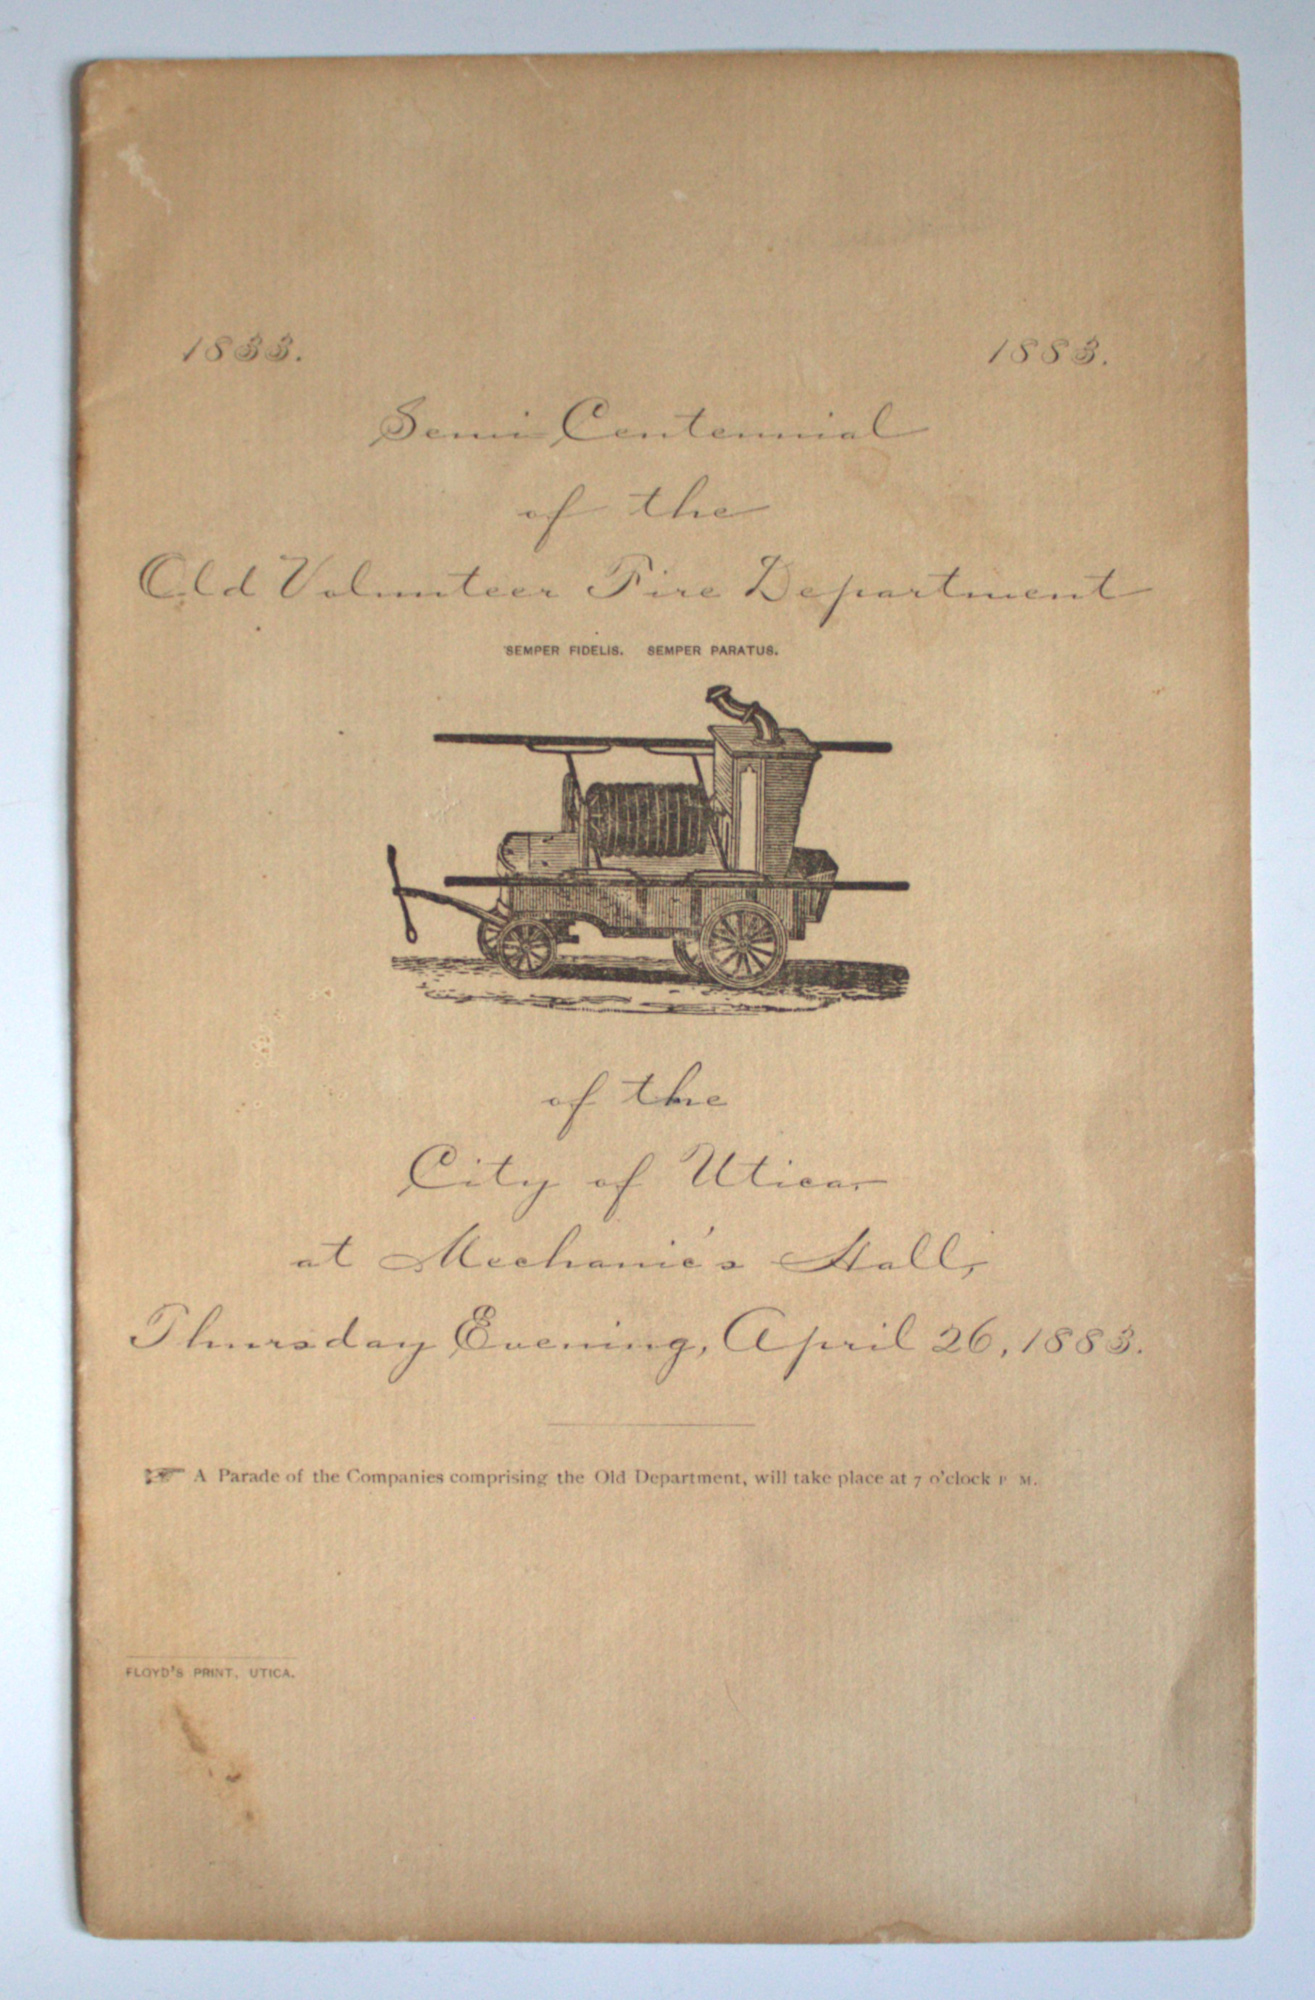 1833. 1883.
Semi-Centennial
of the
Old Volunteer Fire Department
SEMPER FIDELIS. SEMPER PARATUS.
of the
City of Utica,
at Mechanic's Hall,
Thursday Evening, April 26, 1883.
☞ A Parade of the Companies comprising the Old Department, will take place at 7 o'clock P M.
FLOYD'S PRINT, UTICA.